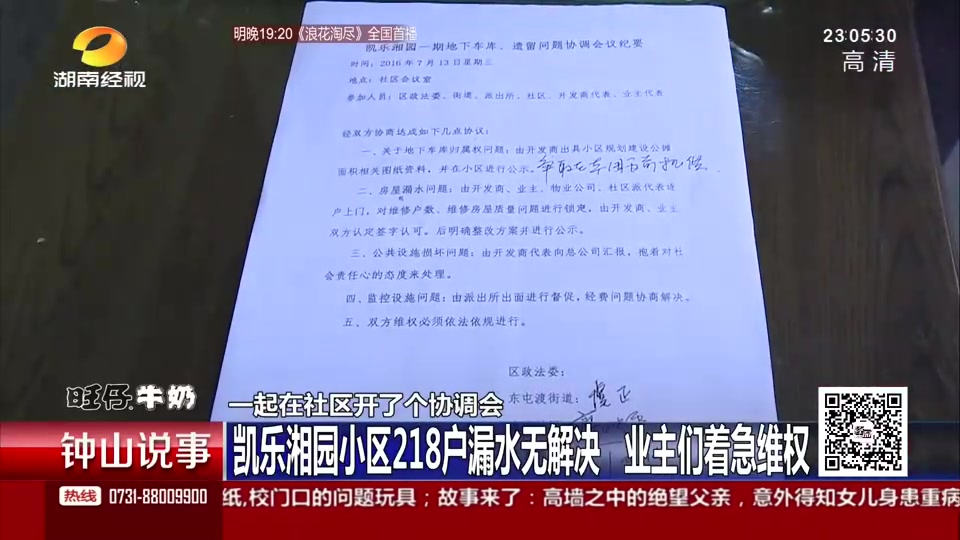 明晚19:20《浪花淘尽》全国首播
23:05:30
高清
湖南经视
凯乐湘园一期地下车库、遗留问题协调会议纪要
时间：2016年7月13日星期三
地点：社区会议室
参加人员：区政法委、街道、派出所、社区、开发商代表、业主代表
经双方协商达成如下几点协议：
一、关于地下车库归属权问题：由开发商出具小区规划建设公摊
面积相关图纸资料，并在小区进行公示。
二、房屋漏水问题：由开发商、业主、物业公司、社区派代表逐
户上门，对维修户数、维修房屋质量问题进行锁定，由开发商、业主
双方认定签字认可。后明确整改方案并进行公示。
三、公共设施损坏问题：由开发商代表向总公司汇报，抱着对社
会责任心的态度来处理。
四、监控设施问题：由派出所出面进行督促，经费问题协商解决。
五、双方维权必须依法依规进行。
区政法委：
东屯渡街道：
旺仔牛奶
一起在社区开了个协调会
钟山说事
凯乐湘园小区218户漏水无解决 业主们着急维权
热线 0731-88009900
纸,校门口的问题玩具；故事来了：高墙之中的绝望父亲，意外得知女儿身患重病